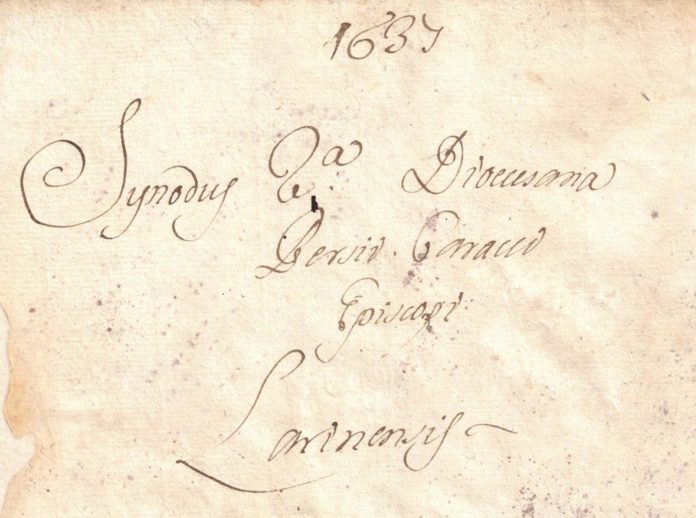 1637
Synodus Diocesana
Persii Caracci
Episcopi
Larinensis